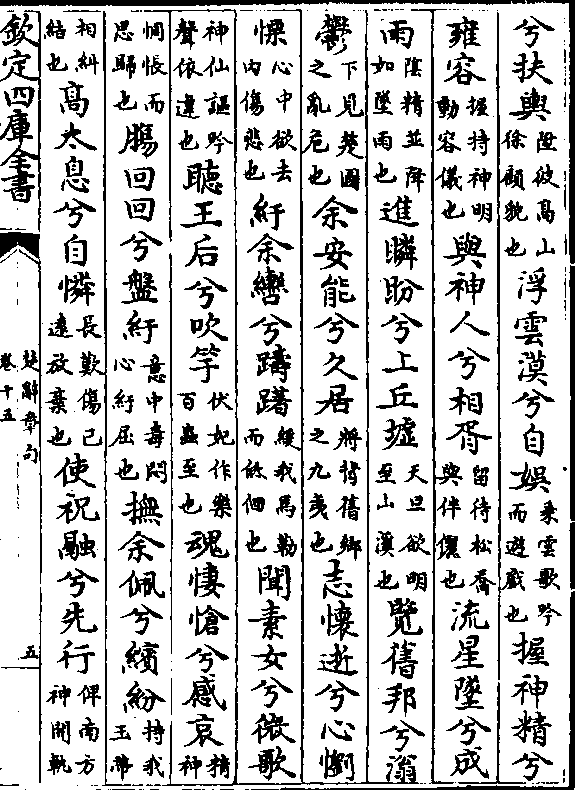 兮扶輿陞彼高山徐顧貌也浮雲漠兮自娛乘雲歌吟而遊戲也握神精兮
雍容握持神明動容儀也與神人兮相胥留待松喬與伴儷也流星墜兮成
雨陰精並降如墜雨也進瞵盼兮上丘墟天旦欲明至山溪也覽舊邦兮滃
鬱下見楚國之亂危也余安能兮久居將背舊鄉之九夷也志懷逝兮心懰
慄心中欲去内傷悲也紆余轡兮躊躇緩我馬勒而低佪也聞素女兮微歌
神仙謳吟聲依違也聽王后兮吹竽伏妃作樂百蟲至也魂悽愴兮感哀精神
惆悵而思歸也腸回回兮盤紆意中毒悶心紆屈也撫余佩兮繽紛持我玉帶
相糾結也高太息兮自憐長歎傷己遠放棄也使祝融兮先行俾南方神開軌
欽定四庫全書
楚辭章句
卷十五
五